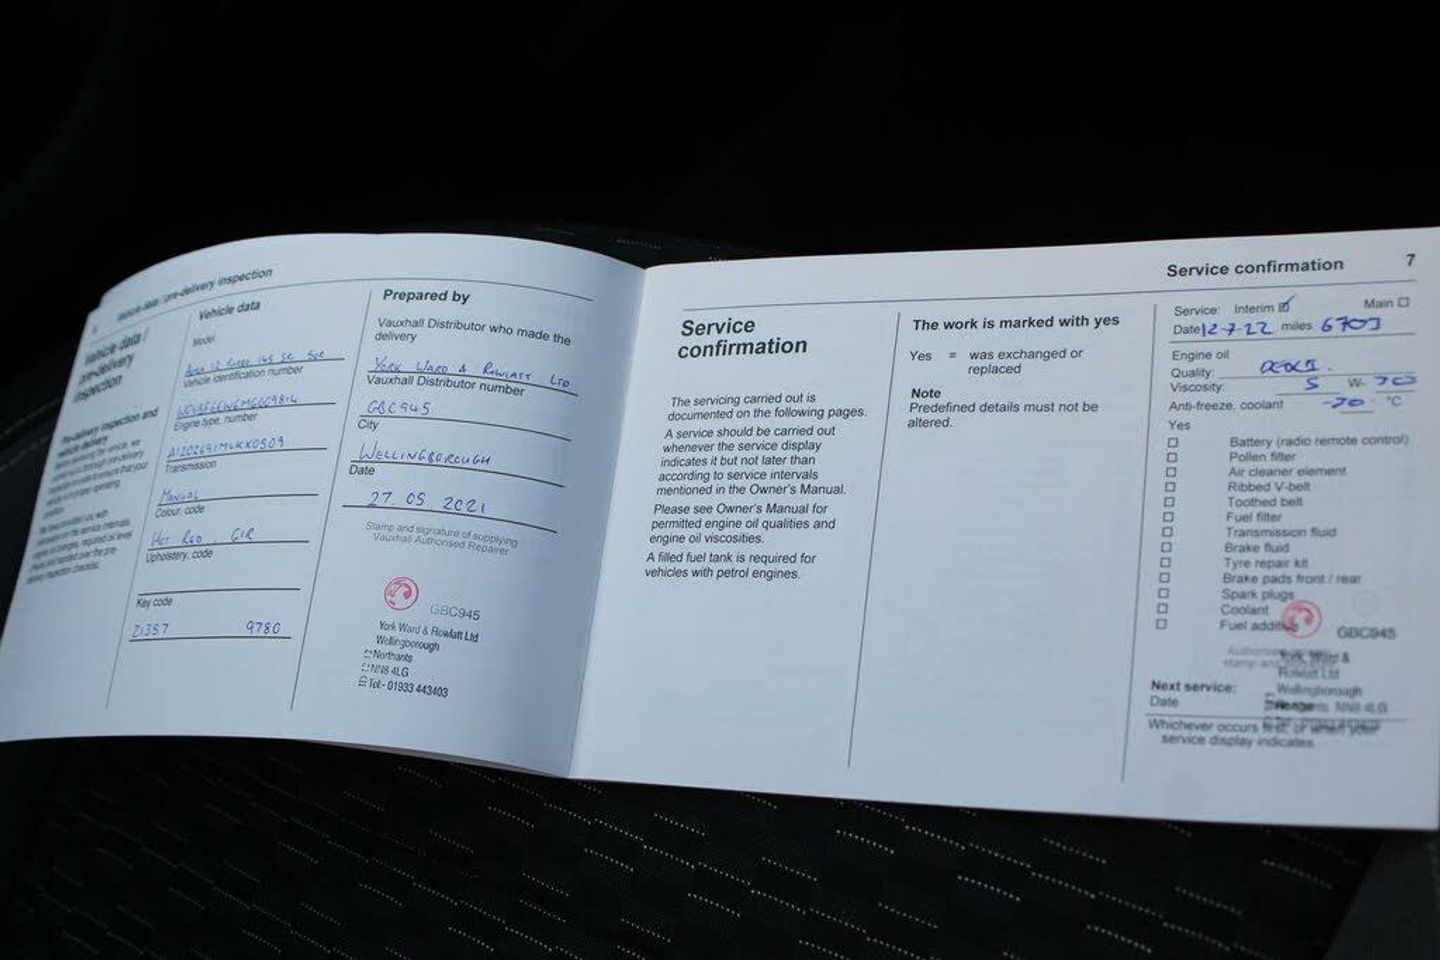 Vehicle data / pre-delivery inspection
Vehicle data /
pre-delivery
inspection
Pre-delivery inspection and
vehicle delivery
Vehicle data
Model
Vehicle identification number
Engine type, number
Transmission
MANUAL
Colour, code
HOT RED. G1R
Upholstery, code
Key code
Z1357 9780
Prepared by
Vauxhall Distributor who made the
delivery
YORK WARD & ROWLATT LTD
Vauxhall Distributor number
GBC945
City
WELLINGBOROUGH
Date
27. 05 2021
Stamp and signature of supplying
Vauxhall Authorised Repairer
GBC945
York Ward & Rowlatt Ltd
Wellingborough
Northants
NN8 4LG
Tel:- 01933 443403
Service confirmation 7
Service
confirmation
The servicing carried out is
documented on the following pages.
A service should be carried out
whenever the service display
indicates it but not later than
according to service intervals
mentioned in the Owner's Manual.
Please see Owner's Manual for
permitted engine oil qualities and
engine oil viscosities.
A filled fuel tank is required for
vehicles with petrol engines.
The work is marked with yes
Yes = was exchanged or
replaced
Note
Predefined details must not be
altered.
Service: Interim Main
Date 12-7-22 miles 6703
Engine oil
Quality:
Viscosity: 5 W-
Anti-freeze, coolant -70 °C
Yes
Battery (radio remote control)
Pollen filter
Air cleaner element
Ribbed V-belt
Toothed belt
Fuel filter
Transmission fluid
Brake fluid
Tyre repair kit
Brake pads front / rear
Spark plugs
Coolant
Fuel additive
GBC945
York, Ward &
Rowlatt Ltd
Wellingborough
Northants NN8 4LG
Next service:
Date
Whichever occurs first, or when your
service display indicates